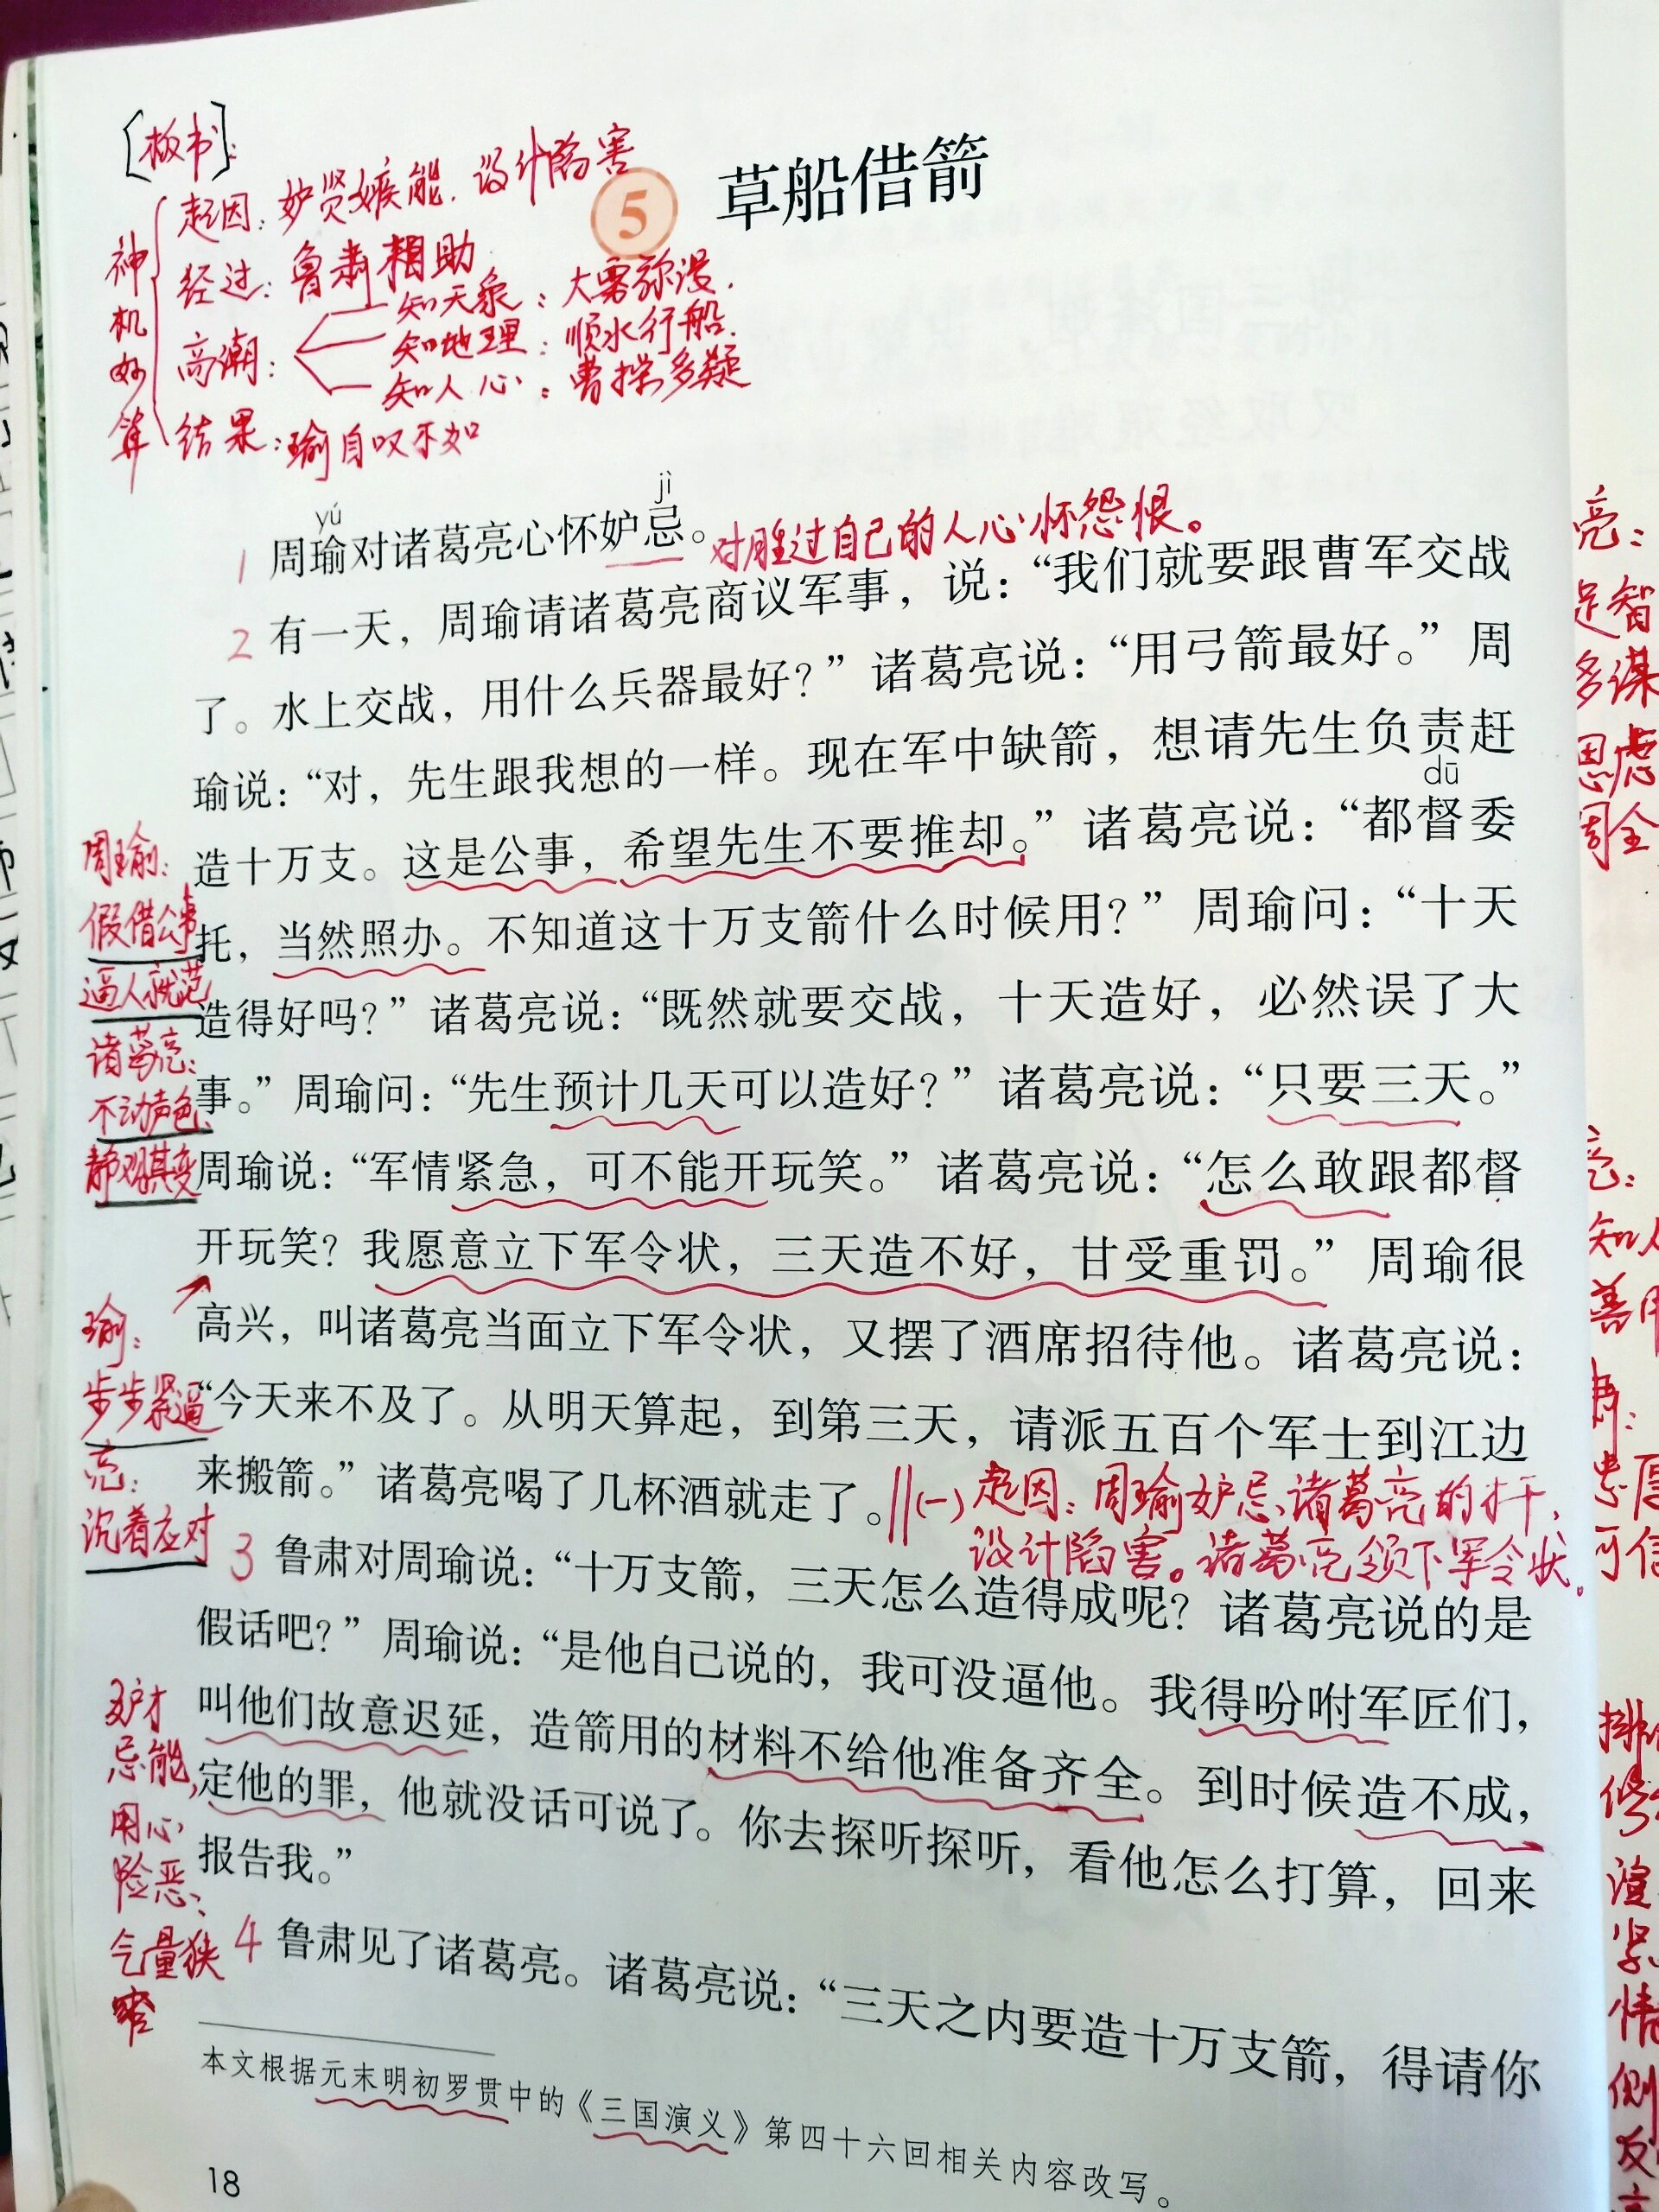 [板书]:
起因：妒贤嫉能.设计陷害
5 草船借箭
神机妙算
经过：鲁肃相助
高潮：
知天象：大雾弥漫.
知地理：顺水行船.
知人心：曹操多疑
结果：瑜自叹不如
yú jì
1 周瑜对诸葛亮心怀妒忌。对胜过自己的人心怀怨恨。
2 有一天，周瑜请诸葛亮商议军事，说：“我们就要跟曹军交战
了。水上交战，用什么兵器最好？”诸葛亮说：“用弓箭最好。”周
瑜说：“对，先生跟我想的一样。现在军中缺箭，想请先生负责赶
dū
造十万支。这是公事，希望先生不要推却。”诸葛亮说：“都督委
托，当然照办。不知道这十万支箭什么时候用？”周瑜问：“十天
造得好吗？”诸葛亮说：“既然就要交战，十天造好，必然误了大
事。”周瑜问：“先生预计几天可以造好？”诸葛亮说：“只要三天。”
周瑜说：“军情紧急，可不能开玩笑。”诸葛亮说：“怎么敢跟都督
开玩笑？我愿意立下军令状，三天造不好，甘受重罚。”周瑜很
高兴，叫诸葛亮当面立下军令状，又摆了酒席招待他。诸葛亮说：
“今天来不及了。从明天算起，到第三天，请派五百个军士到江边
来搬箭。”诸葛亮喝了几杯酒就走了。
(一)起因：周瑜妒忌诸葛亮的才干，
设计陷害。诸葛亮领下军令状。
3 鲁肃对周瑜说：“十万支箭，三天怎么造得成呢？诸葛亮说的是
假话吧？”周瑜说：“是他自己说的，我可没逼他。我得吩咐军匠们，
叫他们故意迟延，造箭用的材料不给他准备齐全。到时候造不成，
定他的罪，他就没话可说了。你去探听探听，看他怎么打算，回来
报告我。”
4 鲁肃见了诸葛亮。诸葛亮说：“三天之内要造十万支箭，得请你
本文根据元末明初罗贯中的《三国演义》第四十六回相关内容改写。
18
周瑜：
假借公事
逼人就范
诸葛亮：
不动声色、
静观其变
瑜：
步步紧逼
亮：
沉着应对
妒才
忌能，
用心
险恶、
气量狭
窄
亮：
足智
多谋
思虑
周全
亮：
知人
善用